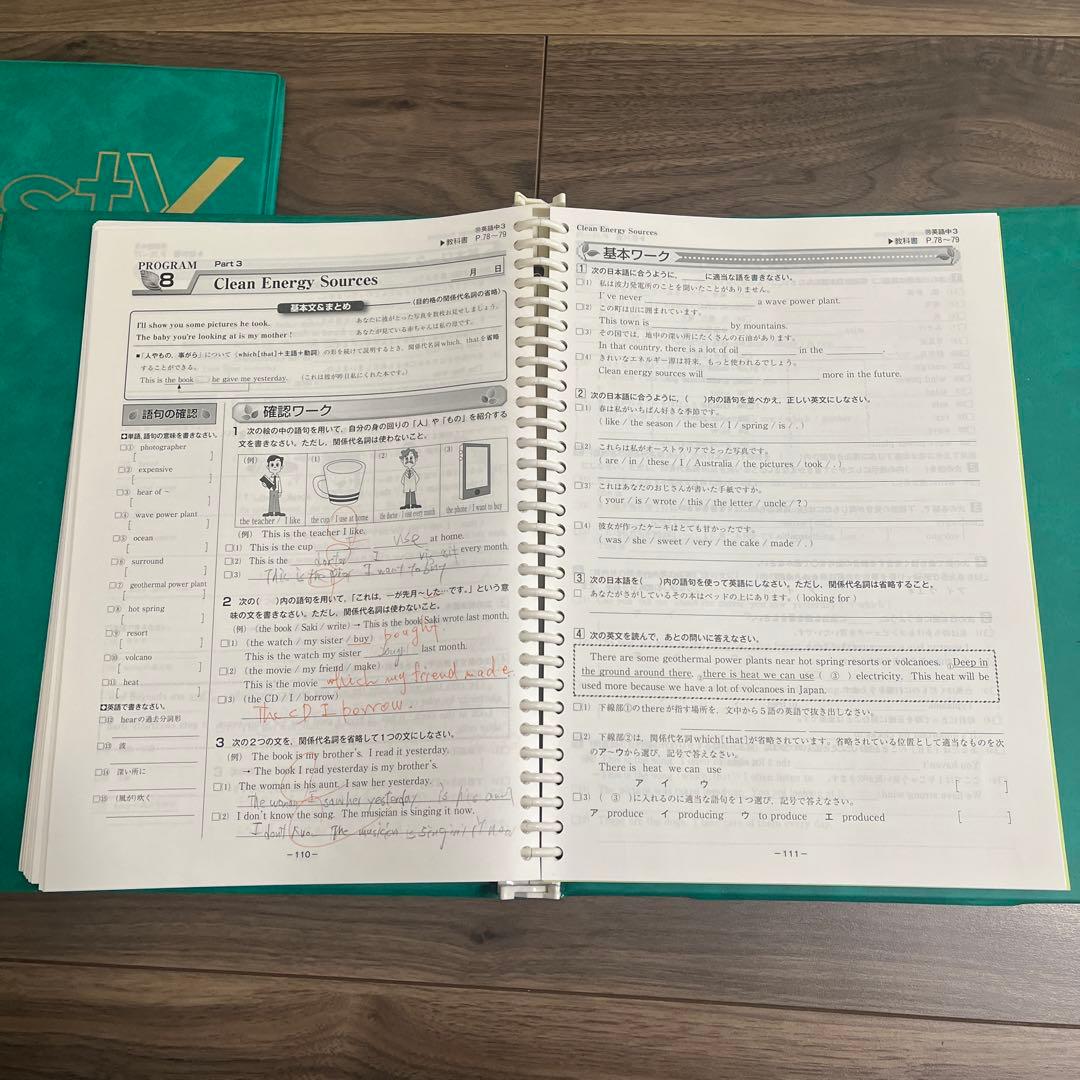 sty
㊥英語中3
▶教科書 P.78〜79
PROGRAM 8 Part 3
Clean Energy Sources 月 日
基本文&まとめ (目的格の関係代名詞の省略)
I'll show you some pictures he took. あなたに彼がとった写真を数枚お見せしましょう。
The baby you're looking at is my mother ! あなたが見ている赤ちゃんは私の母です。
■「人やもの，事がら」について〈which[that]＋主語＋動詞〉の形を続けて説明するとき，関係代名詞 which, that を省略
することができる。
This is the book he gave me yesterday. (これは彼が昨日私にくれた本です。)
語句の確認
単語，語句の意味を書きなさい。
□① photographer
[ ]
□② expensive
[ ]
□③ hear of ~
[ ]
□④ wave power plant
[ ]
□⑤ ocean
[ ]
□⑥ surround
[ ]
□⑦ geothermal power plant
[ ]
□⑧ hot spring
[ ]
□⑨ resort
[ ]
□⑩ volcano
[ ]
□⑪ heat
[ ]
英語で書きなさい。
□⑫ hearの過去分詞形
□⑬ 波
□⑭ 深い所に
□⑮ (風が)吹く
確認ワーク
1 次の絵の中の語句を用いて，自分の身の回りの「人」や「もの」を紹介する
文を書きなさい。ただし，関係代名詞は使わないこと。
(例) (1) (2) (3)
the teacher / I like the cup / I use at home the doctor / I visit every month the phone / I want to buy
(例) This is the teacher I like.
□(1) This is the cup I use at home.
□(2) This is the doctor I visit every month.
□(3) This is the I want to buy
2 次の( )内の語句を用いて，「これは，…が先月〜した…です。」という意
味の文を書きなさい。ただし，関係代名詞は使わないこと。
(例) (the book / Saki / write) → This is the book Saki wrote last month.
□(1) (the watch / my sister / buy) bought
This is the watch my sister buy last month.
□(2) (the movie / my friend / make)
This is the movie which my friend made.
□(3) (the CD / I / borrow)
The CD I borrow.
3 次の2つの文を，関係代名詞を省略して1つの文にしなさい。
(例) The book is my brother's. I read it yesterday.
→ The book I read yesterday is my brother's.
□(1) The woman is his aunt. I saw her yesterday.
The woman I saw her yesterday is his aunt
□(2) I don't know the song. The musician is singing it now.
I don't The musician is singing it now
－110－
Clean Energy Sources
㊥英語中3
▶教科書 P.78〜79
基本ワーク
1 次の日本語に合うように，____に適当な語を書きなさい。
□(1) 私は波力発電所のことを聞いたことがありません。
I've never ____ a wave power plant.
□(2) この町は山に囲まれています。
This town is ____ by mountains.
□(3) その国では，地中の深い所にたくさんの石油があります。
In that country, there is a lot of oil ____ in the ____.
□(4) きれいなエネルギー源は将来，もっと使われるでしょう。
Clean energy sources will ____ more in the future.
2 次の日本語に合うように，( )内の語句を並べかえ，正しい英文にしなさい。
□(1) 春は私がいちばん好きな季節です。
( like / the season / the best / I / spring / is / . )
□(2) これらは私がオーストラリアでとった写真です。
( are / in / these / I / Australia / the pictures / took / . )
□(3) これはあなたのおじさんが書いた手紙ですか。
( your / is / wrote / this / the letter / uncle / ? )
□(4) 彼女が作ったケーキはとても甘かったです。
( was / she / sweet / very / the cake / made / . )
3 次の日本語を( )内の語句を使って英語にしなさい。ただし，関係代名詞は省略すること。
□ あなたがさがしているその本はベッドの上にあります。( looking for )
4 次の英文を読んで，あとの問いに答えなさい。
There are some geothermal power plants near hot spring resorts or volcanoes. ①Deep in
the ground around there, ②there is heat we can use ( ③ ) electricity. This heat will be
used more because we have a lot of volcanoes in Japan.
□(1) 下線部①のthereが指す場所を，文中から5語の英語で抜き出しなさい。
□(2) 下線部②は，関係代名詞which[that]が省略されています。省略されている位置として適当なものを次
のア〜ウから選び，記号で答えなさい。
There is heat we can use
ア イ ウ [ ]
□(3) ( ③ )に入れるのに適当な語句を1つ選び，記号で答えなさい。
ア produce イ producing ウ to produce エ produced [ ]
－111－